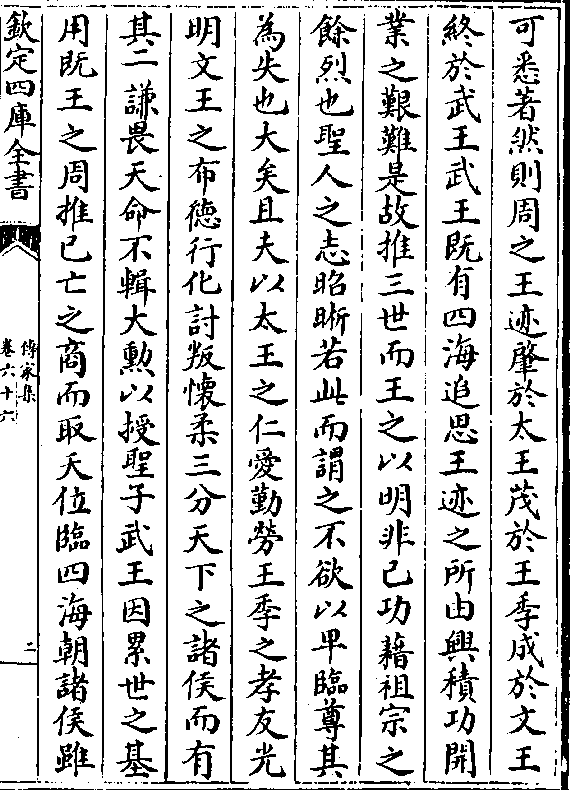 可悉著然則周之王迹肇於太王茂於王季成於文王
終於武王武王既有四海追思王迹之所由興積功開
業之艱難是故推三世而王之以明非已功藉祖宗之
餘烈也聖人之志昭晰若此而謂之不欲以卑臨尊其
為失也大矣且夫以太王之仁愛勤勞王季之孝友光
明文王之布徳行化討叛懷柔三分天下之諸侯而有
其二謙畏天命不輯大勲以授聖子武王因累世之基
用既王之周推已亡之商而取天位臨四海朝諸侯雖
欽定四庫全書
傳家集
卷六十六
二